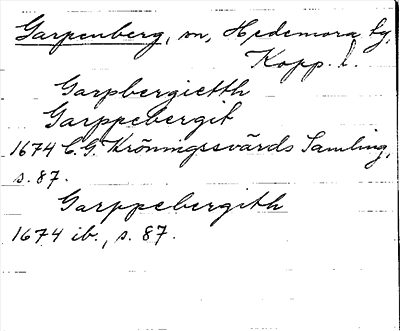 Garpenberg, sn, Hedemora tg,
Kopp. l.
Garpbergietth
Garppebergit
1674 C. G. Kröningssvärds Samling,
s. 87.
Garppebergith
1674 ib., s. 87.